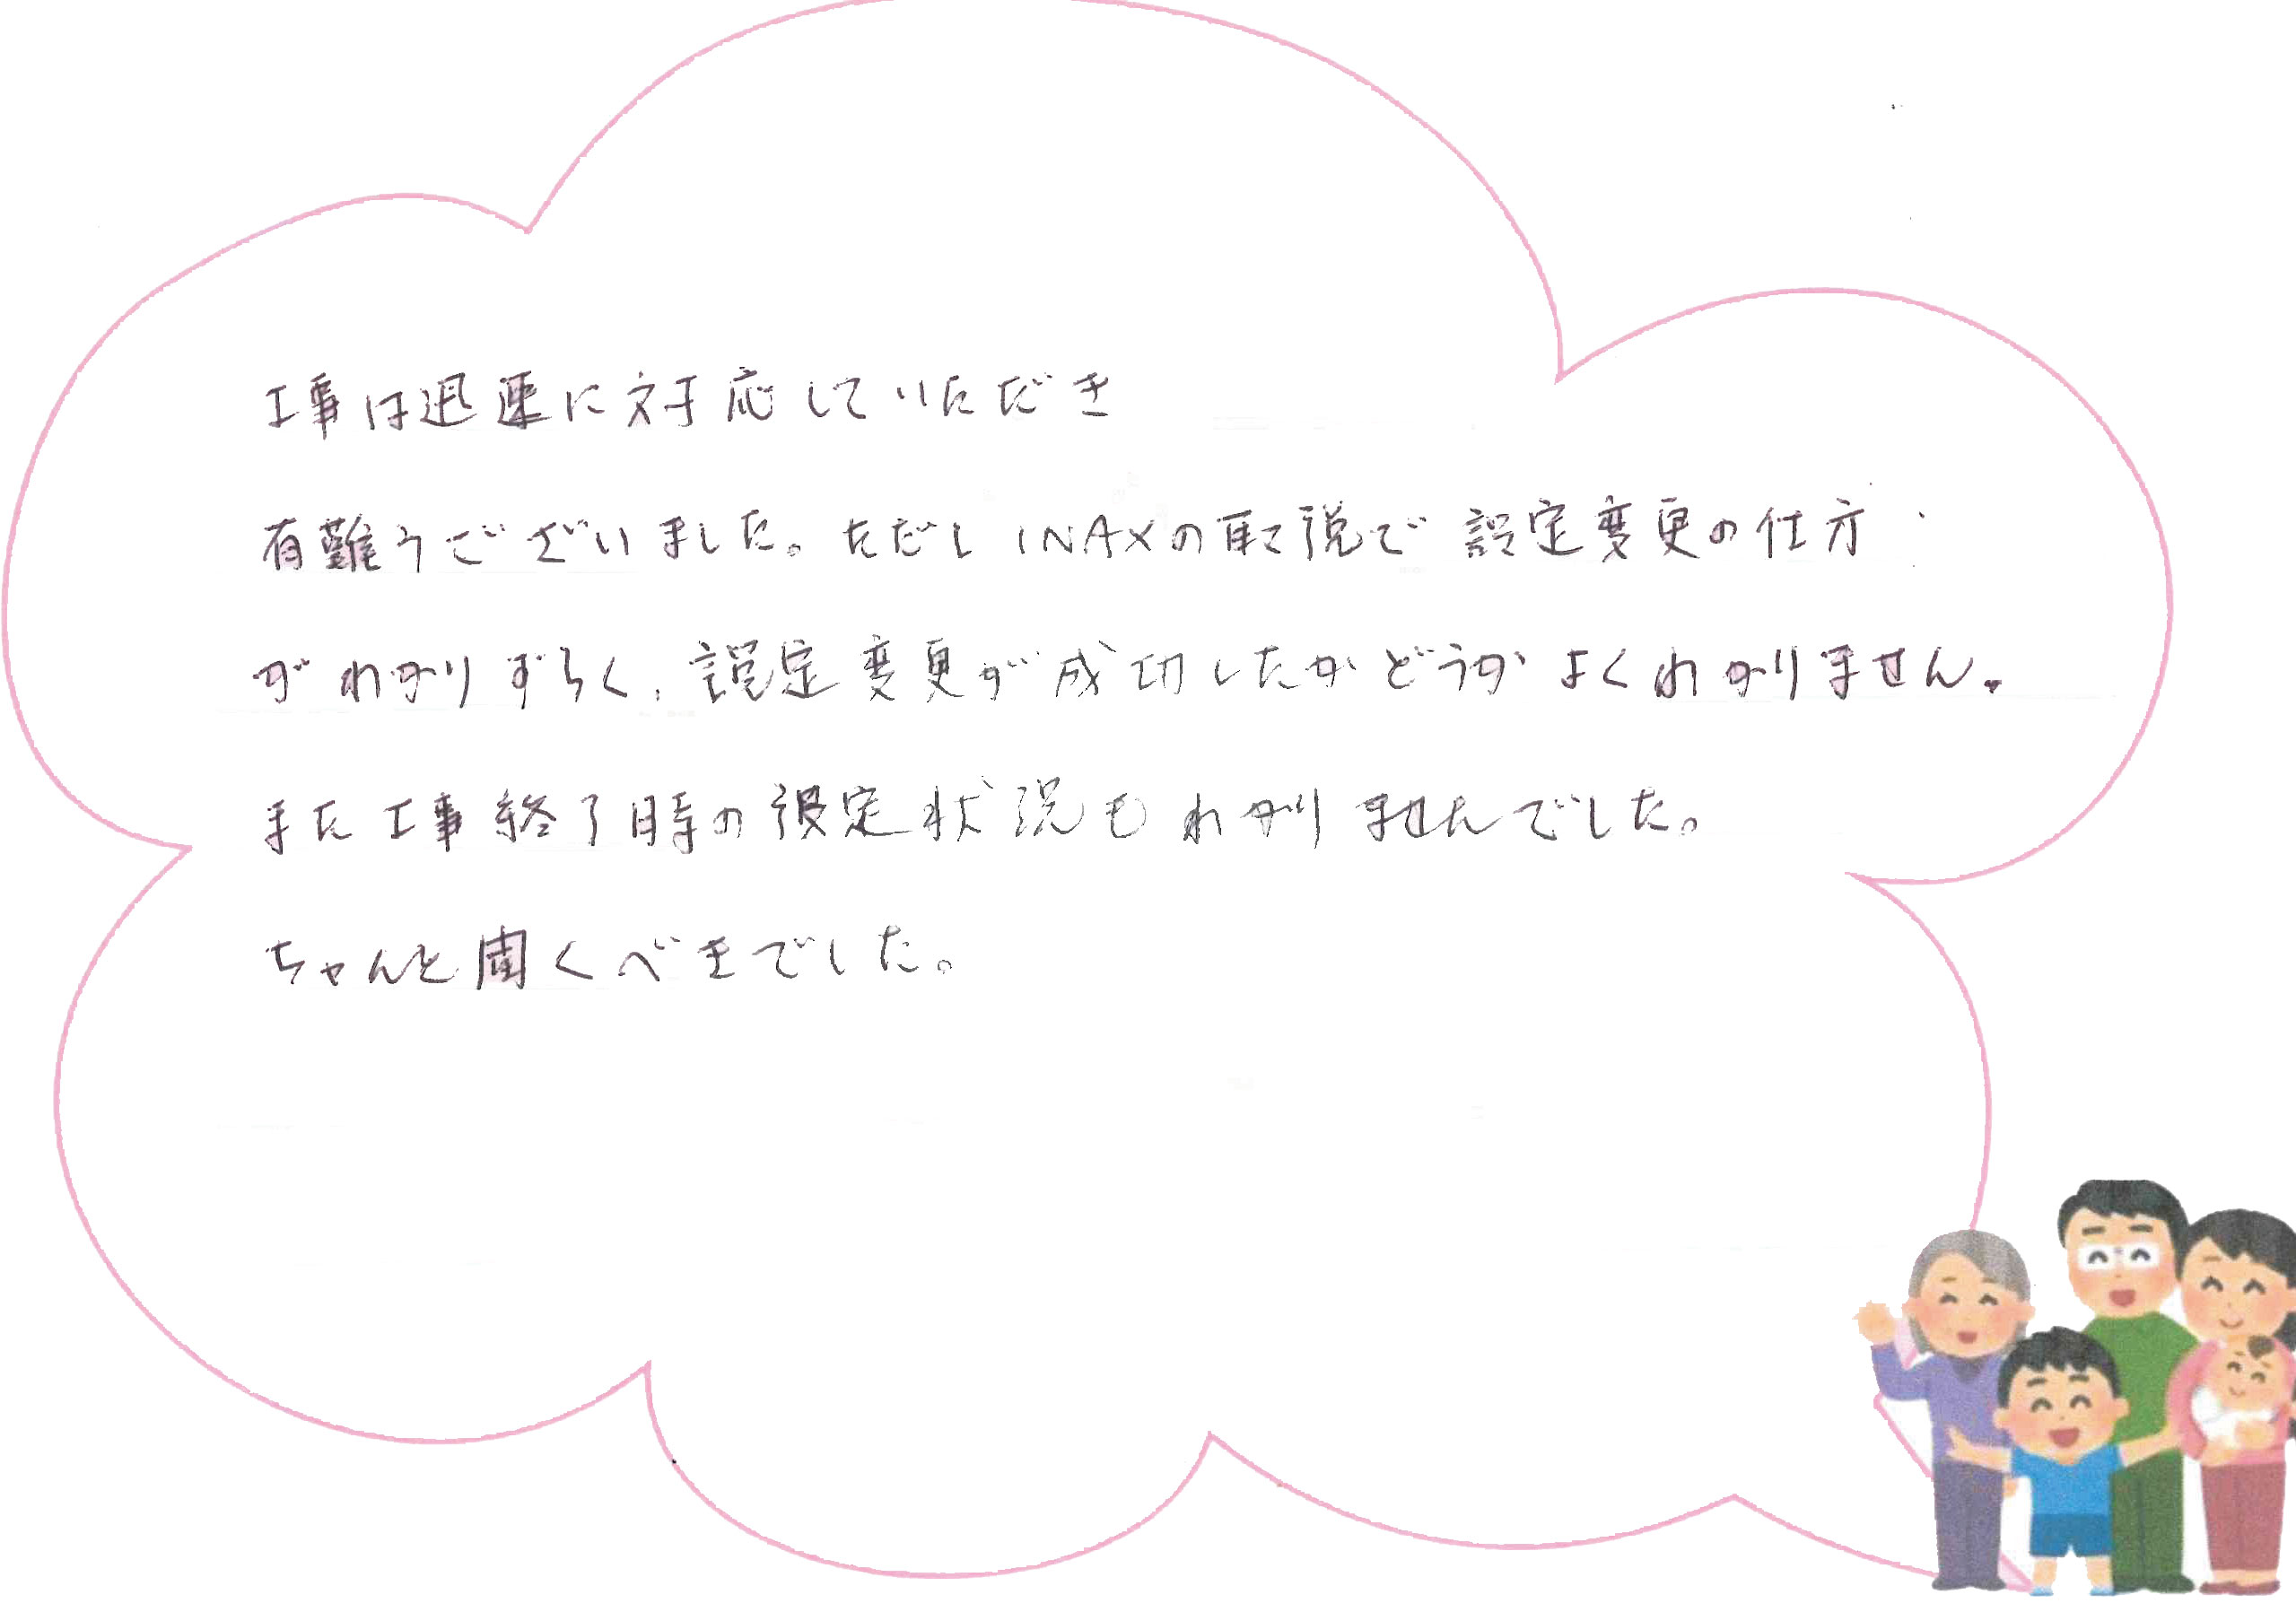 工事は迅速に対応していただき
有難うございました。ただしINAXの取説で設定変更の仕方
がわかりずらく、設定変更が成功したかどうかよくわかりません。
また工事終了時の設定状況もわかりませんでした。
ちゃんと聞くべきでした。